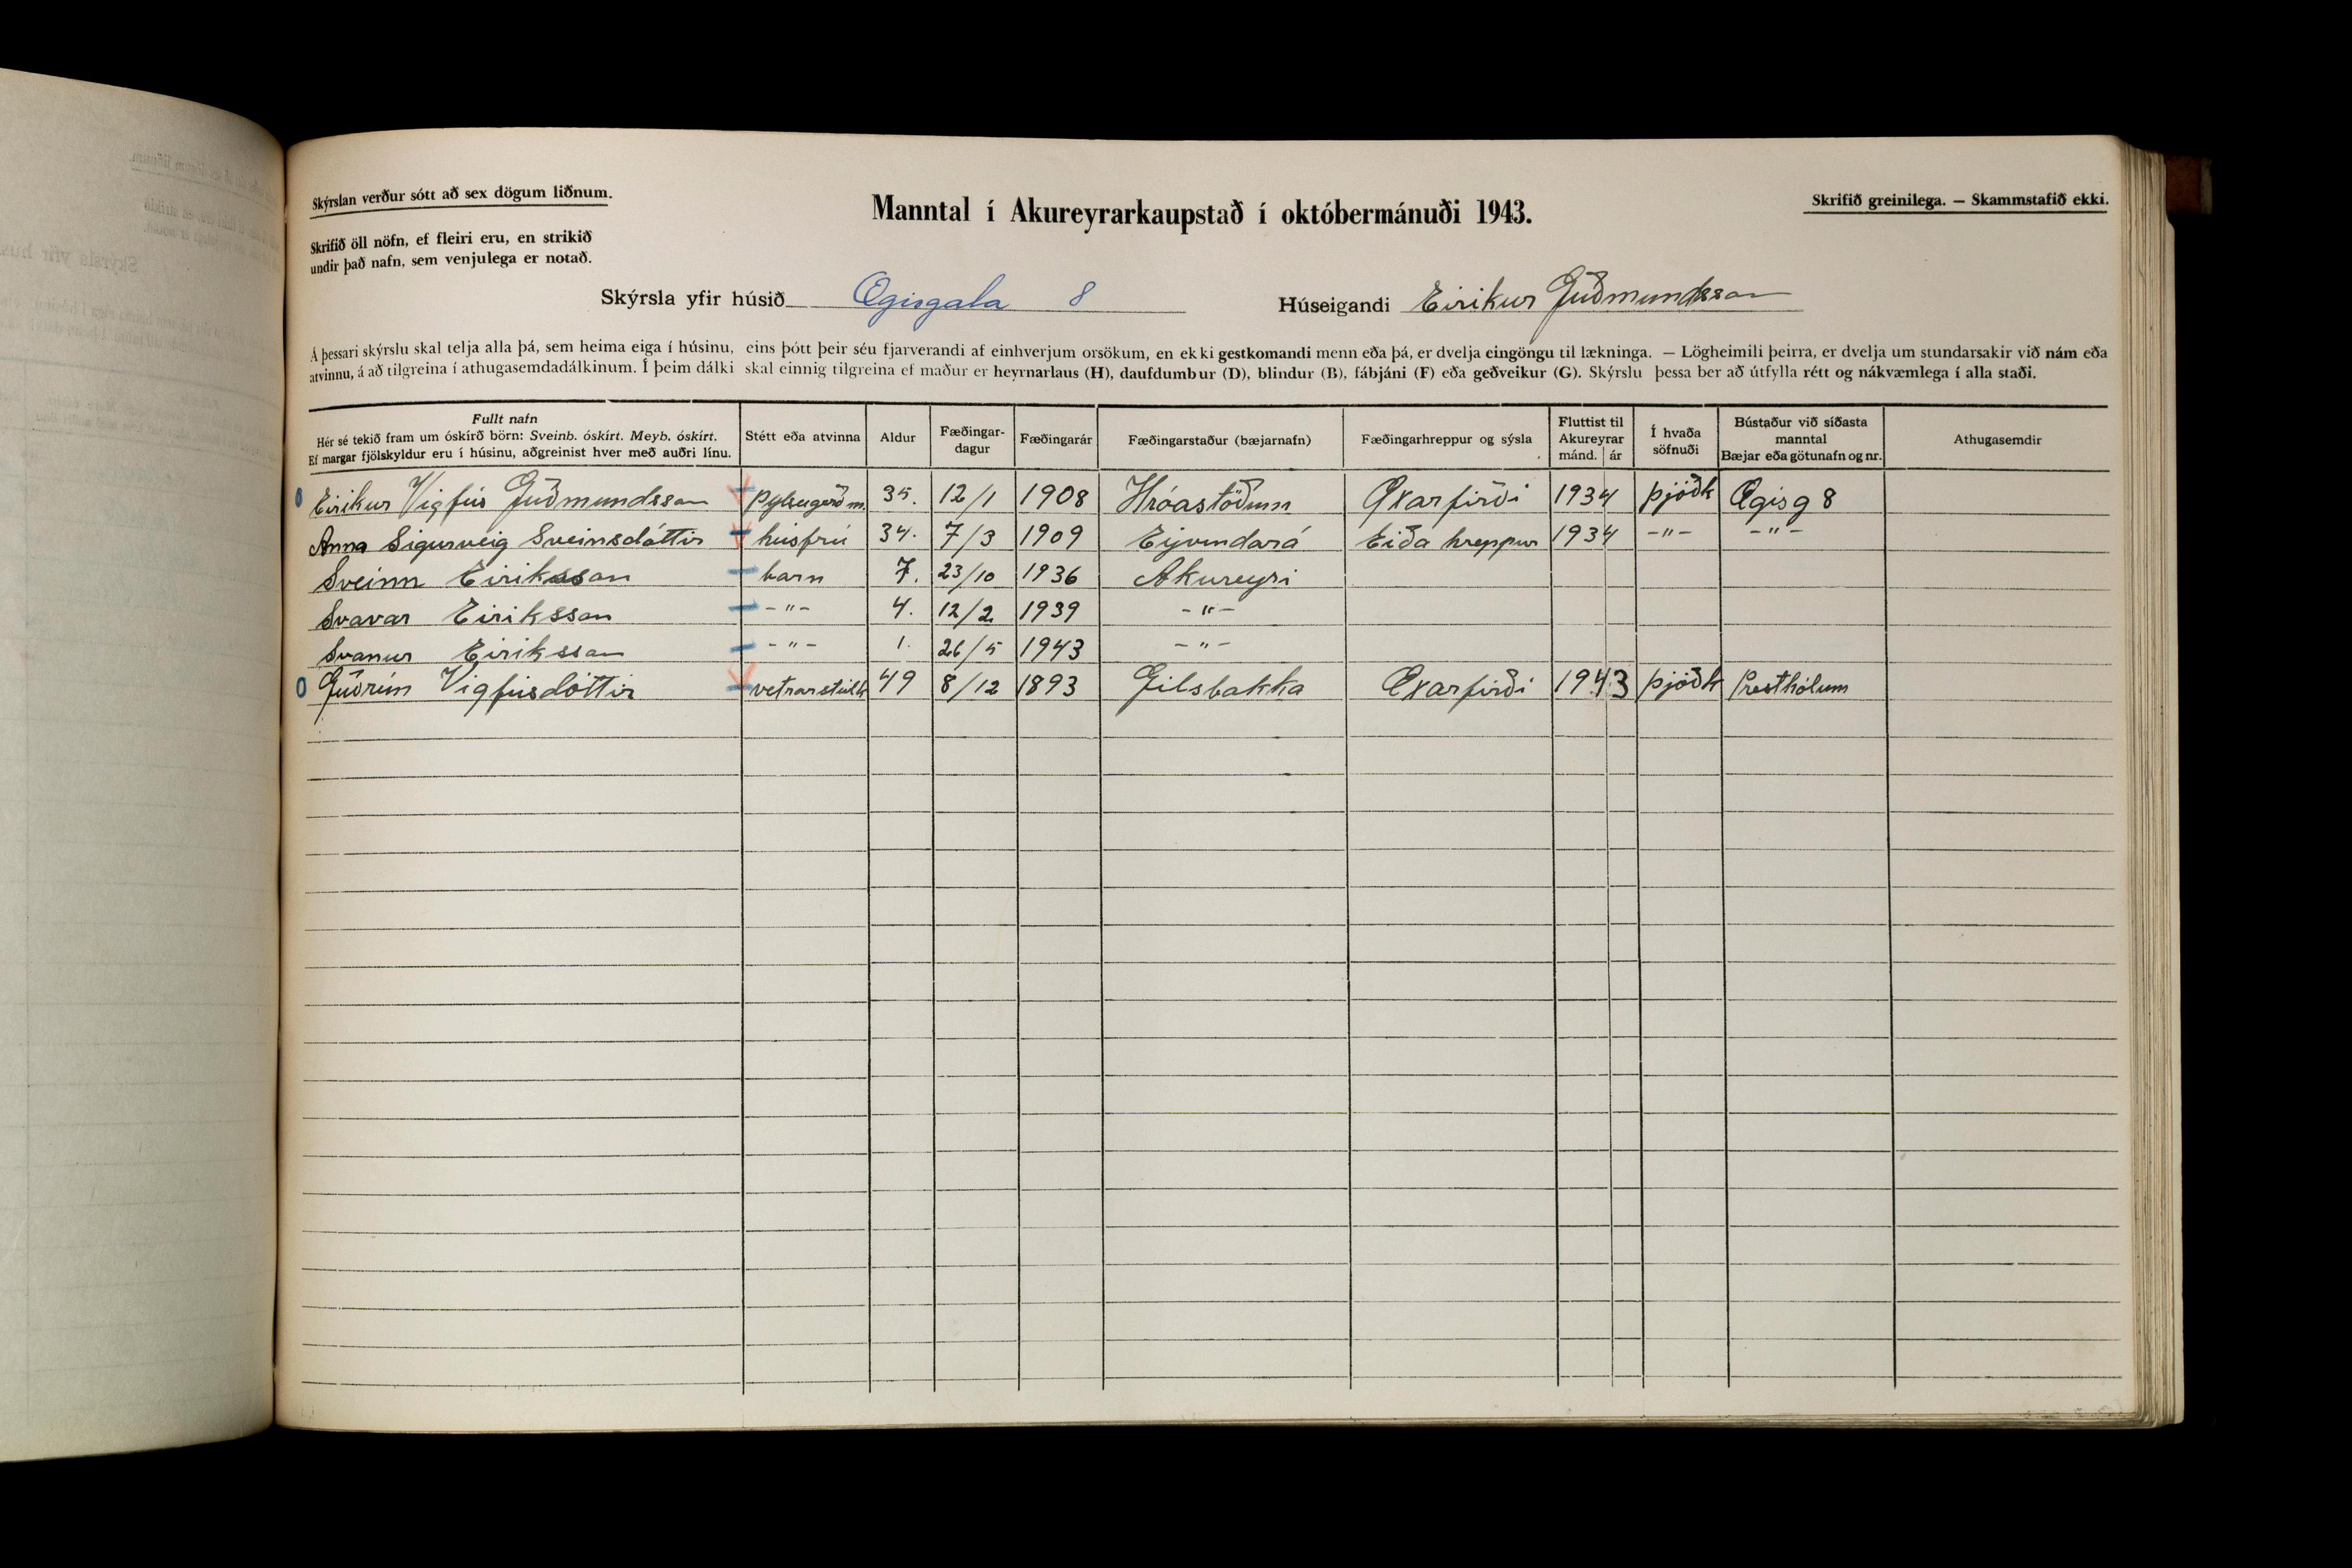 Skýrslan verður sótt að sex dögum liðnum.
Manntal í Akureyrarkaupstað í októbermánuði 1943.
Skrifið greinilega. — Skammstafið ekki.
Skrifið öll nöfn, ef fleiri eru, en strikið
undir það nafn, sem venjulega er notað.
Skýrsla yfir húsið Ægisgata 8 Húseigandi Eirikur Guðmundsson
Á þessari skýrslu skal telja alla þá, sem heima eiga í húsinu, eins þótt þeir séu fjarverandi af einhverjum orsökum, en ekki gestkomandi menn eða þá, er dvelja eingöngu til lækninga. — Lögheimili þeirra, er dvelja um stundarsakir við nám eða
atvinnu, á að tilgreina í athugasemdadálkinum. Í þeim dálki skal einnig tilgreina ef maður er heyrnarlaus (H), daufdumbur (D), blindur (B), fábjáni (F) eða geðveikur (G). Skýrslu þessa ber að útfylla rétt og nákvæmlega í alla staði.
Fullt nafn
Hér sé tekið fram um óskírð börn: Sveinb. óskírt. Meyb. óskírt.
Ef margar fjölskyldur eru í húsinu, aðgreinist hver með auðri línu.
Stétt eða atvinna
Aldur
Fæðingar-
dagur
Fæðingarár
Fæðingarstaður (bæjarnafn)
Fæðingarhreppur og sýsla
Fluttist til
Akureyrar
mánd. ár
Í hvaða
söfnuði
Bústaður við síðasta
manntal
Bæjar eða götunafn og nr.
Athugasemdir
Eirikur Vigfús Guðmundsson pylsugerðm. 35. 12/1 1908 Hróastöðum Öxarfirði 1934 þjóðk Ægisg 8
Anna Sigurveig Sveinsdóttir húsfrú 34. 7/3 1909 Eyvindará Eiða hreppur 1934 -"- -"-
Sveinn Eiriksson barn 7. 23/10 1936 Akureyri
Svavar Eiriksson -"- 4. 12/2 1939 -"-
Svanur Eiriksson -"- 1. 26/5 1943 -"-
Guðrún Vigfúsdóttir vetrarstúlk 49 8/12 1893 Gilsbakka Öxarfirði 1943 þjóðk Presthólum